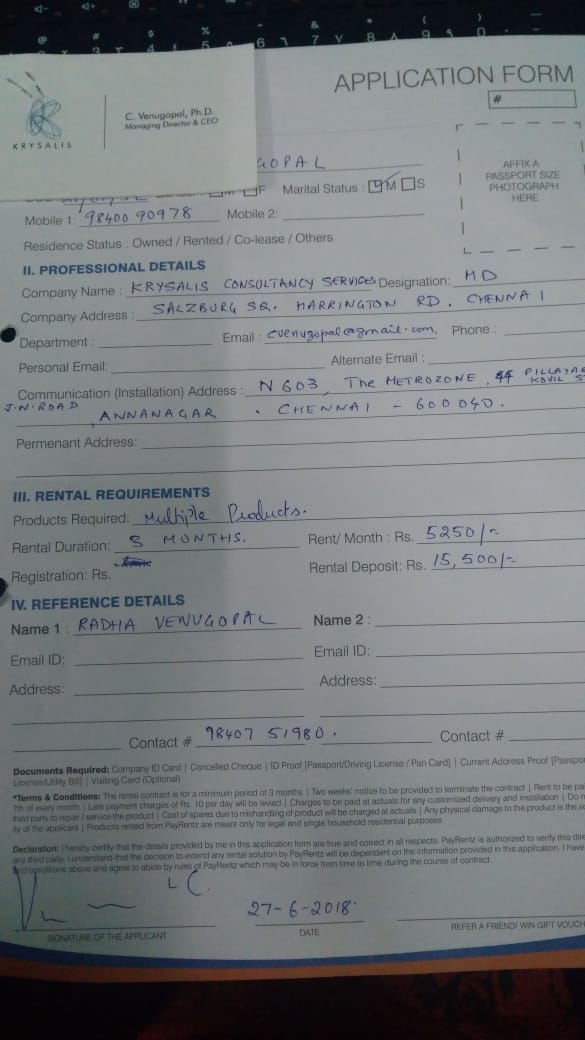 APPLICATION FORM
#
C. Venugopal, Ph.D.
Managing Director & CEO
KRYSALIS
GOPAL
AFFIX A
PASSPORT SIZE
PHOTOGRAPH
HERE
F Marital Status : M S
Mobile 1: 98400 90978 Mobile 2:
Residence Status : Owned / Rented / Co-lease / Others
II. PROFESSIONAL DETAILS
Company Name : KRYSALIS CONSULTANCY SERVICES Designation: MD
Company Address : SALZBURG SQ. HARRINGTON RD. CHENNAI
Department : Email : cvenugopal@gmail.com, Phone :
Personal Email: Alternate Email :
Communication (Installation) Address : N 603, The METROZONE, 44 PILLAYAR
KOVIL ST
J.N. ROAD
ANNANAGAR . CHENNAI - 600040.
Permenant Address:
III. RENTAL REQUIREMENTS
Products Required: Multiple Products.
Rental Duration: 3 MONTHS. Rent/ Month : Rs. 5250/-
Registration: Rs. Rental Deposit: Rs. 15,500/-
IV. REFERENCE DETAILS
Name 1 : RADHA VENUGOPAL Name 2 :
Email ID: Email ID:
Address: Address:
Contact # 98407 51980. Contact #
Documents Required: Company ID Card | Cancelled Cheque | ID Proof [Passport/Driving License / Pan Card] | Current Address Proof [Passpo
License/Utility Bill] | Visiting Card (Optional)
*Terms & Conditions: The rental contract is for a minimum period of 3 months | Two weeks' notice to be provided to terminate the contract | Rent to be pa
7th of every month | Late payment charges of Rs. 10 per day will be levied | Charges to be paid at actuals for any customized delivery and installation | Do n
third party to repair / service the product | Cost of spares due to mishandling of product will be charged at actuals | Any physical damage to the product is the so
ity of the applicant | Products rented from PayRentz are meant only for legal and single household residential purposes.
Declaration: I hereby certify that the details provided by me in this application form are true and correct in all respects. PayRentz is authorized to verify this dire
any third party. I understand that the decision to extend any rental solution by PayRentz will be dependent on the information provided in this application. I have
and conditions above and agree to abide by rules of PayRentz which may be in force from time to time during the course of contract.
27-6-2018
SIGNATURE OF THE APPLICANT DATE REFER A FRIEND! WIN GIFT VOUCH